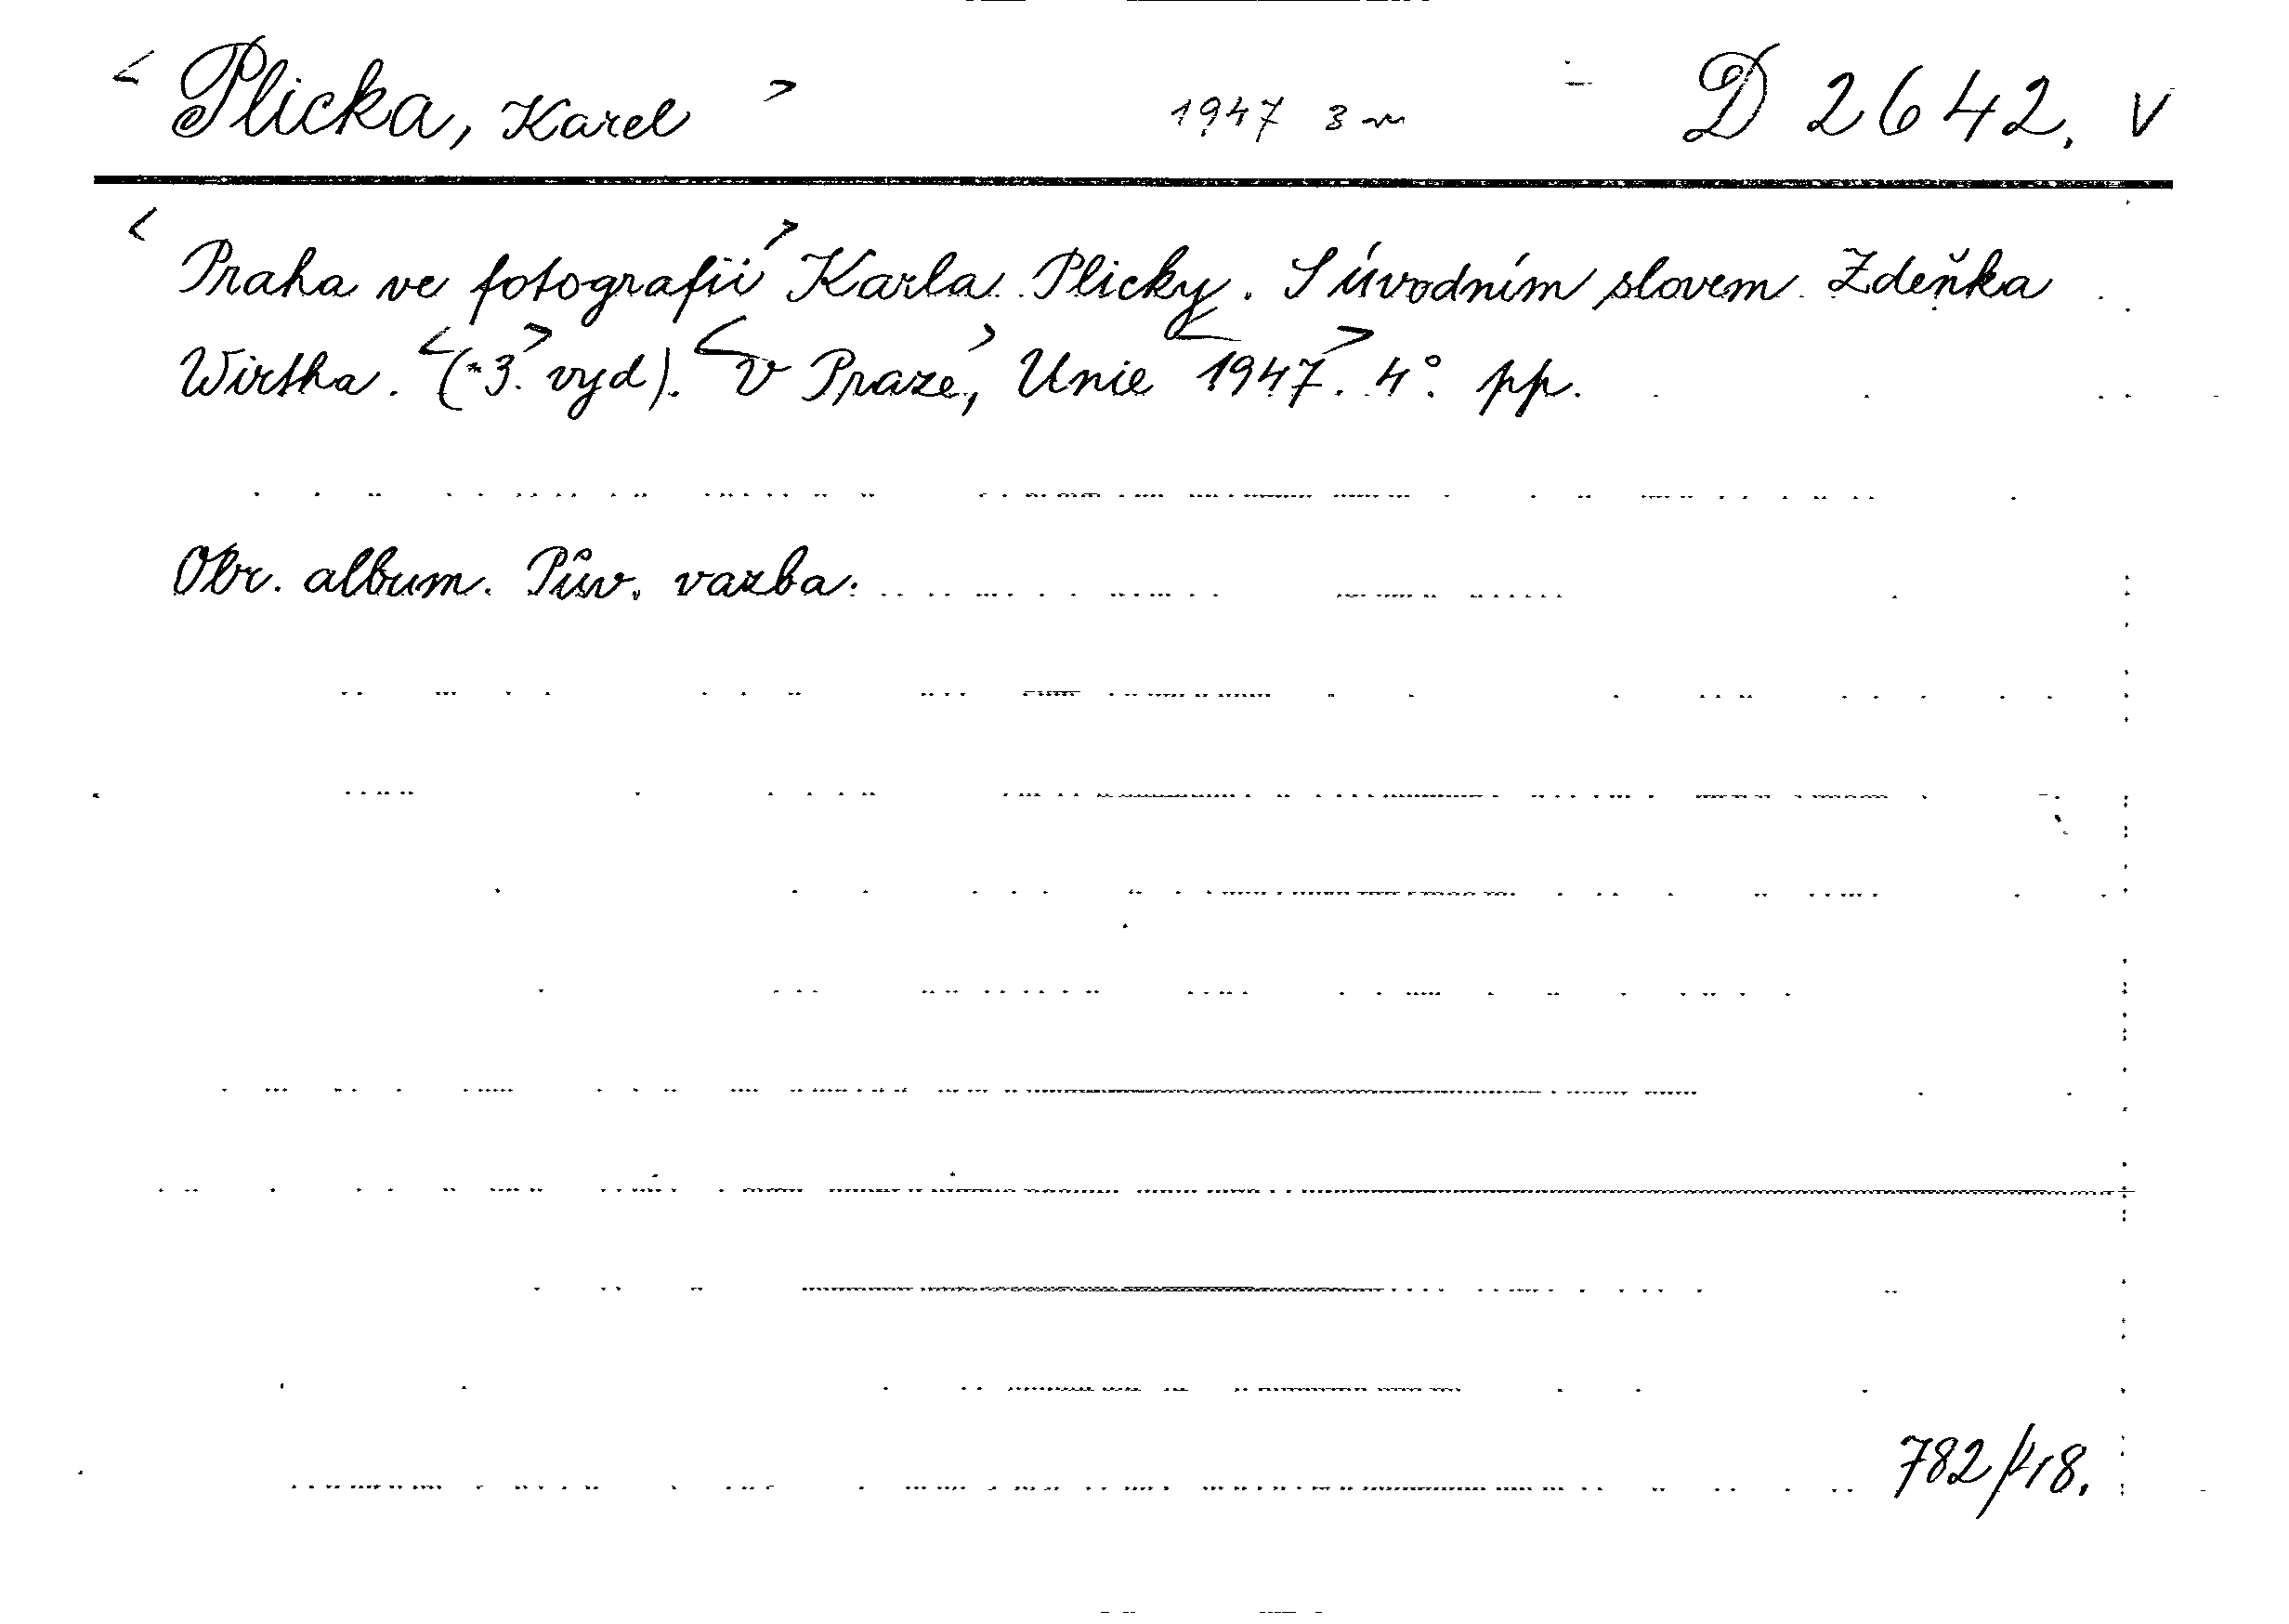 < Plicka, Karel > 1947 3 D 2642. V
< Praha ve fotografii > Karla Plicky. S úvodním slovem Zdeňka
Wirtha. < (*3. > vyd). < V Praze, > Unie < 1947. > 4°. pp.
Obr. album. Pův. vazba.
782/48.